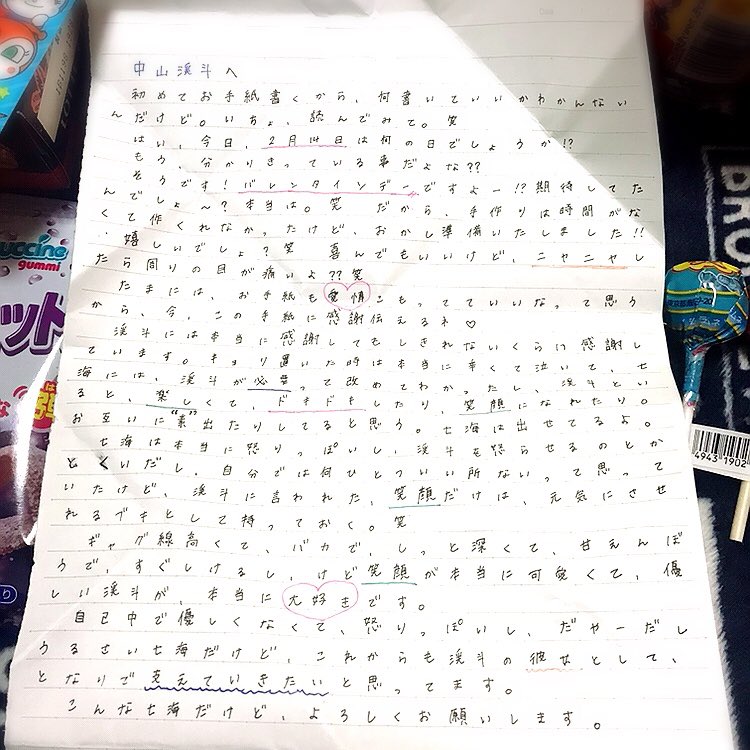 中山渓斗へ
初めてお手紙書くから、何書いていいかわかんない
んだけど。いちょ、読んでみて。笑
はい、今日、2月14日は何の日でしょうか!?
もう、分かりきっている事だよな??
そうです!バレンタインデーですよー!?期待してた
んでしょ〜?本当は。笑 だから、手作りは時間がな
くて作くれなかったけど、おかし準備いたしました!!
嬉しいでしょ?笑 喜んでもいいけど、ニヤニヤし
たら周りの目が痛いよ??笑
たまには、お手紙も愛情こもってていいなって思う
から、今、この手紙に感謝伝えるネ♡
渓斗には本当に感謝してもしきれないくらい感謝し
ています。キョリ置いた時は本当に辛くて泣いて、七
海には、渓斗が必要って改めてわかったし、渓斗とい
ると、楽しくて、ドキドキしたり、笑顔になれたり。
お互いに“素”出たりしてると思う。七海は出せてるよ。
七海は本当に怒りっぽいし、渓斗を怒らせるのとか
とくいだし、自分では何ひとついい所ないって思って
いたけど、渓斗に言われた、笑顔だけは、元気にさせ
れるブキとして持っておく。笑
ギャグ線高くて、バカで、しっと深くて、甘えんぼ
うで、すぐしけるし、けど笑顔が本当に可愛くて、優
しい渓斗が、本当に大好きです。
自己中で優しくなくて、怒りっぽいし、だやーだし
うるさい七海だけど、これからも渓斗の彼女として、
となりで支えていきたいと思ってます。
こんな七海だけど、よろしくお願いします。
uccine
gummi
ット
BRO
4943 1902